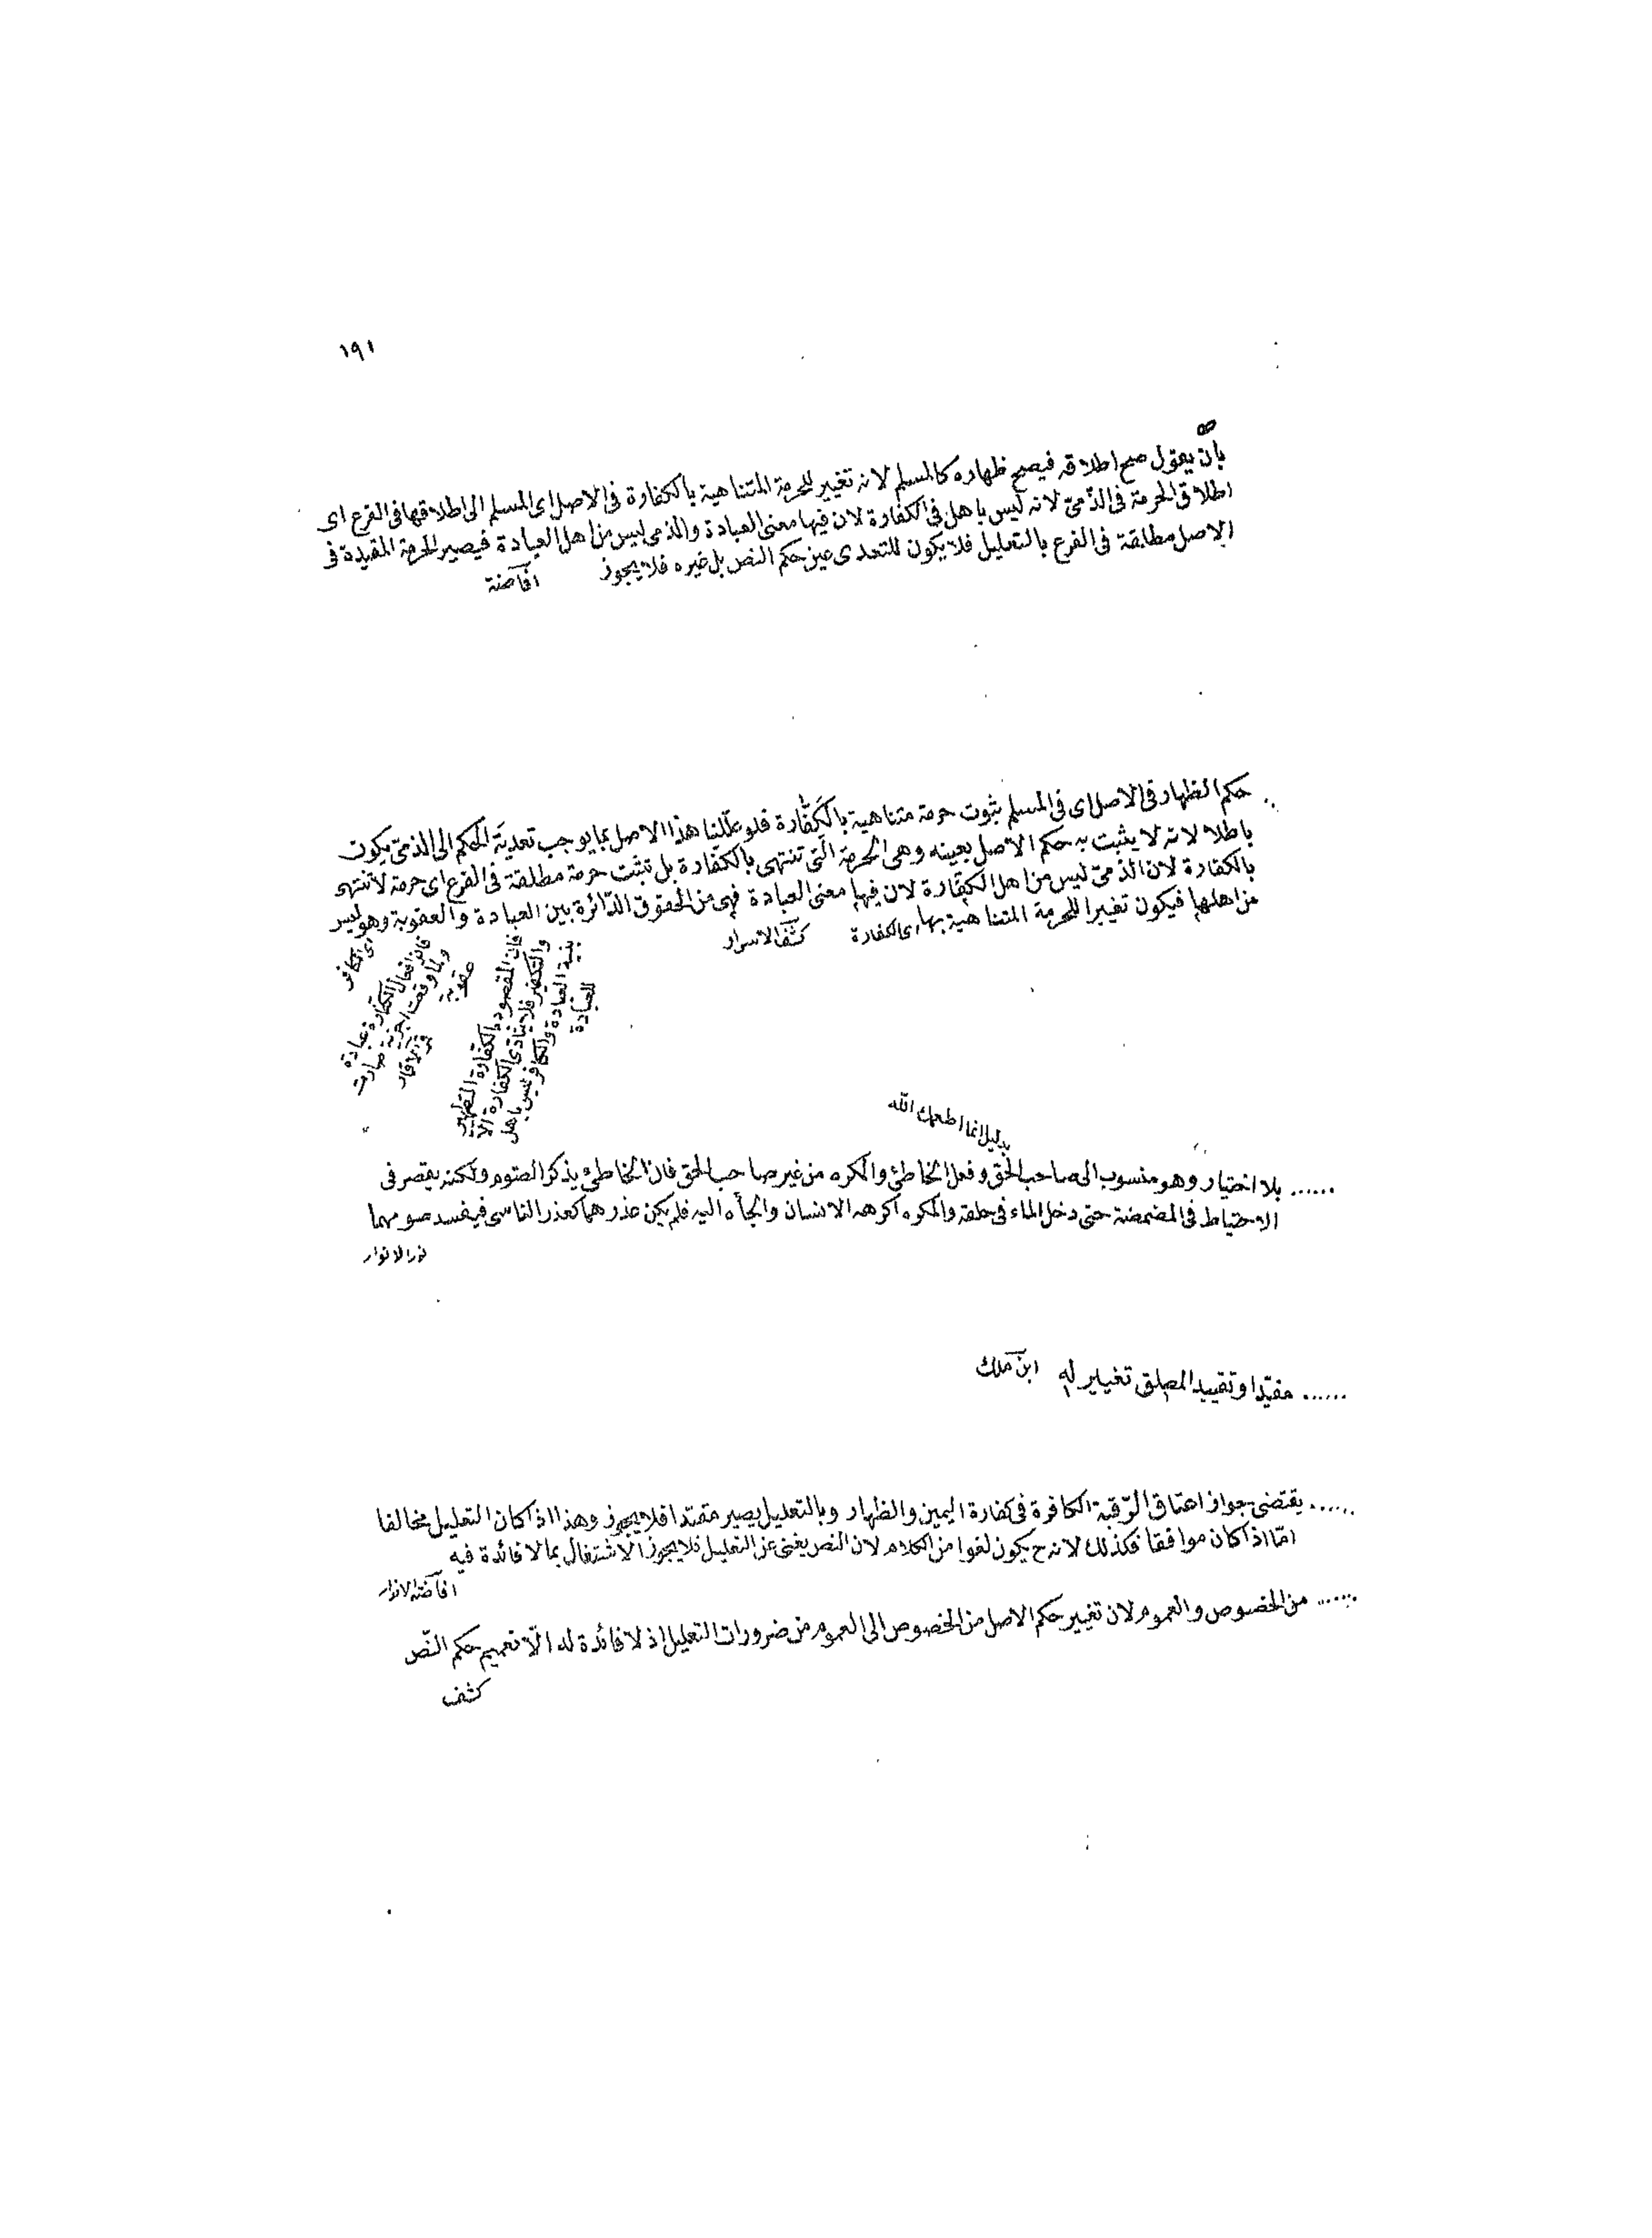 ١٩١
بان يعقول صح اطلاقه فيصح ظهاره كالمسلم لانه تغيير للحرمة المتناهية بالكفارة فى الاصل اى المسلم الى اطلاقها فى الفرع اى
اطلاق الحرمة فى الذّمىّ لانه ليس باهل فى الكفارة لان فيها معنى العبادة والذمى ليس من اهل العبادة فيصير الحرمة المقيدة فى
الاصل مطابقة فى الفرع بالتعليل فلا يكون للتعدى عين حكم النص بل غيره فلا يجوز افاضة
حكم الظهار فى الاصل اى فى المسلم ثبوت حرمة متناهية بالكَفّارة فلو علّلنا هذا الاصل بما يوجب تعديَة الحكم الى الذمىّ يكون
باطلا لانه لا يثبت به حكم الاصل بعينه وهى الحرمة الّتى تنتهى بالكفّارة بل تثبت حرمة مطلقة فى الفرع اى حرمة لا تنتهى
بالكفارة لان الذمىّ ليس من اهل الكفّارة لان فيها معنى العبادة فهى من الحقوق الدّائرة بين العبادة والعقوبة وهو ليس
من اهلها فيكون تغييرا للحرمة المتناهية بها اى الكفارة كشف الاسرار
اى الكافر
فان افعال الكفّارة عبادة
ولما وقعت اجزية صارت
عقوبة
فان المقصود بالكفّارة التطهير
والتكفير فلا يتأدّى الكفارة الا
بنية العبادة والكافر ليس باهل
للعبادة
بدليل انما اطعمك الله
...... بلا اختيار وهو منسوب الى صاحب الحق وفعل الخاطئ والمكره من غير صاحب الحق فان الخاطئ يذكر الصّوم ولكنه يقصر فى
الاحتياط فى المضمضة حتى دخل الماء فى حلقه والمكره اكرهه الانسان والجأه اليه فلم يكن عذرهما كعذر الناسى فيفسد صومهما
نور الانوار
...... مقيّدا وتقييد المطلق تغيير له ابن ملك
...... يقتضى جواز اعتاق الرّقبة الكافرة فى كفارة اليمين والظهار وبالتعليل يصير مقيّدا فلا يجوز وهذا اذا كان التعليل مخالفا
امّا اذا كان موافقا فكذلك لانه ح يكون لغوا من الكلام لان النص يغنى عن التعليل فلا يجوز الاشتغال بما لا فائدة فيه
افاضة الانوار
...... من الخصوص والعموم لان تغيير حكم الاصل من الخصوص الى العموم من ضرورات التعليل اذ لا فائدة له الّا تعميم حكم النّص
كشف